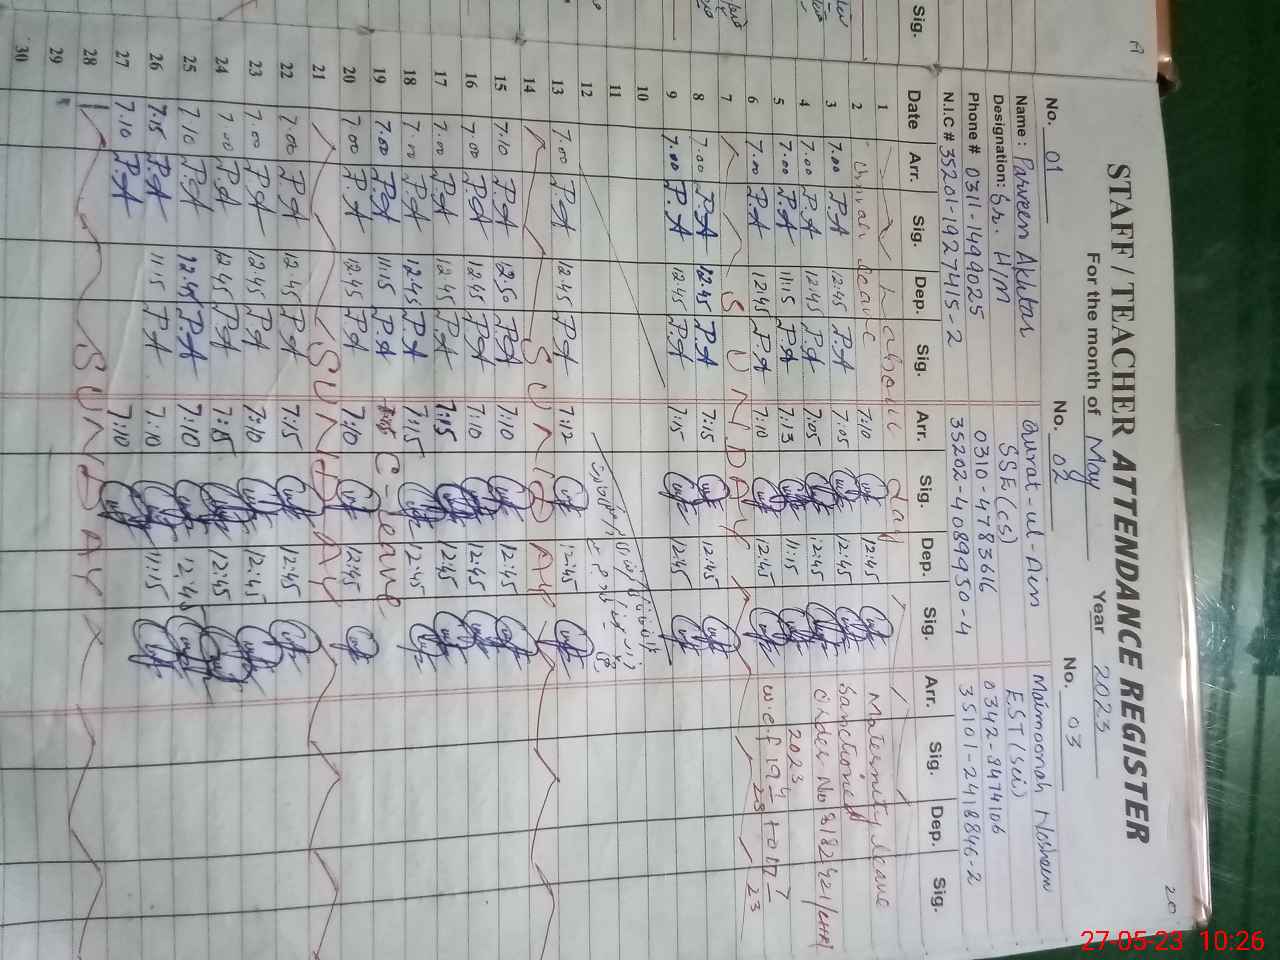 STAFF / TEACHER ATTENDANCE REGISTER
For the month of May Year 2023
No. 01 No. 02 No. 03
Name : Parveen Akhtar Qurat-ul-Ain Maimoonah Nosheen
Designation: Sr. H/M SSE(CS) EST(Sci)
Phone # 0311-1499025 0310-4783616 0342-8474106
N.I.C # 35201-1927415-2 35202-4089950-4 35101-2418846-2
Sig. Date Arr. Sig. Dep. Sig. Arr. Sig. Dep. Sig. Arr. Sig. Dep. Sig.
1 Labour Day 7:10 12:45
2 Leave 7:05 12:45 Maternity leave
3 7.00 P.A 12:45 P.A 7:05 12:45 Sanctioned
4 7.00 P.A 12:45 P.A 7:05 12:45
5 7.00 P.A 11:15 P.A 7:13 11:15 2023
6 7.00 P.A 12:45 P.A 7:10 12:45 w.e.f
7 SUNDAY
8 7.00 P.A 12.45 P.A 7:15 12:45
9 7.00 P.A 12:45 P.A 7:15 12:45
10
11
12
13 7.00 P.A 12.45 P.A 7:12 12:45
14 SUNDAY
15 7.10 P.A 12:50 P.A 7:10 12:45
16 7.00 P.A 12:45 P.A 7:10 12:45
17 7.00 P.A 12:45 P.A 7:15 12:45
18 7.00 P.A 12:45 P.A 7:15 12:45
19 7.00 P.A 11:15 P.A C-leave
20 7.00 P.A 12.45 P.A 7:10 12:45
21 SUNDAY
22 7.00 P.A 12.45 P.A 7:15 12:45
23 7.00 P.A 12:45 P.A 7:10 12:45
24 7.00 P.A 12:45 P.A 7:15 12:45
25 7.10 P.A 12.45 P.A 7:10 12:45
26 7.15 P.A 11:15 P.A 7:10 11:15
27 7.10 P.A 7:10
28 SUNDAY
29
30
27-05-23 10:26